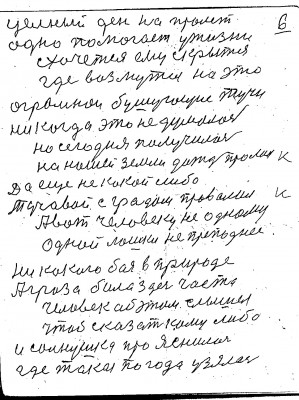 6
целный ден на пролет
одно помогает у жизни
схочется ему скрытся
где возмутки на это
огромной бушующие тучи
никогда это не думалоя
но сегодня получилоя
на нашей земли дожд пролил к
Да еще не какой либо
с градом провалил к
А вот человеку не одному
одной не
ни какого боя в природе
А гроза била здес часта
человек об этом слышил
чтоб сказат кому либо
и солнушка про яснилоя
где такая погода узялая